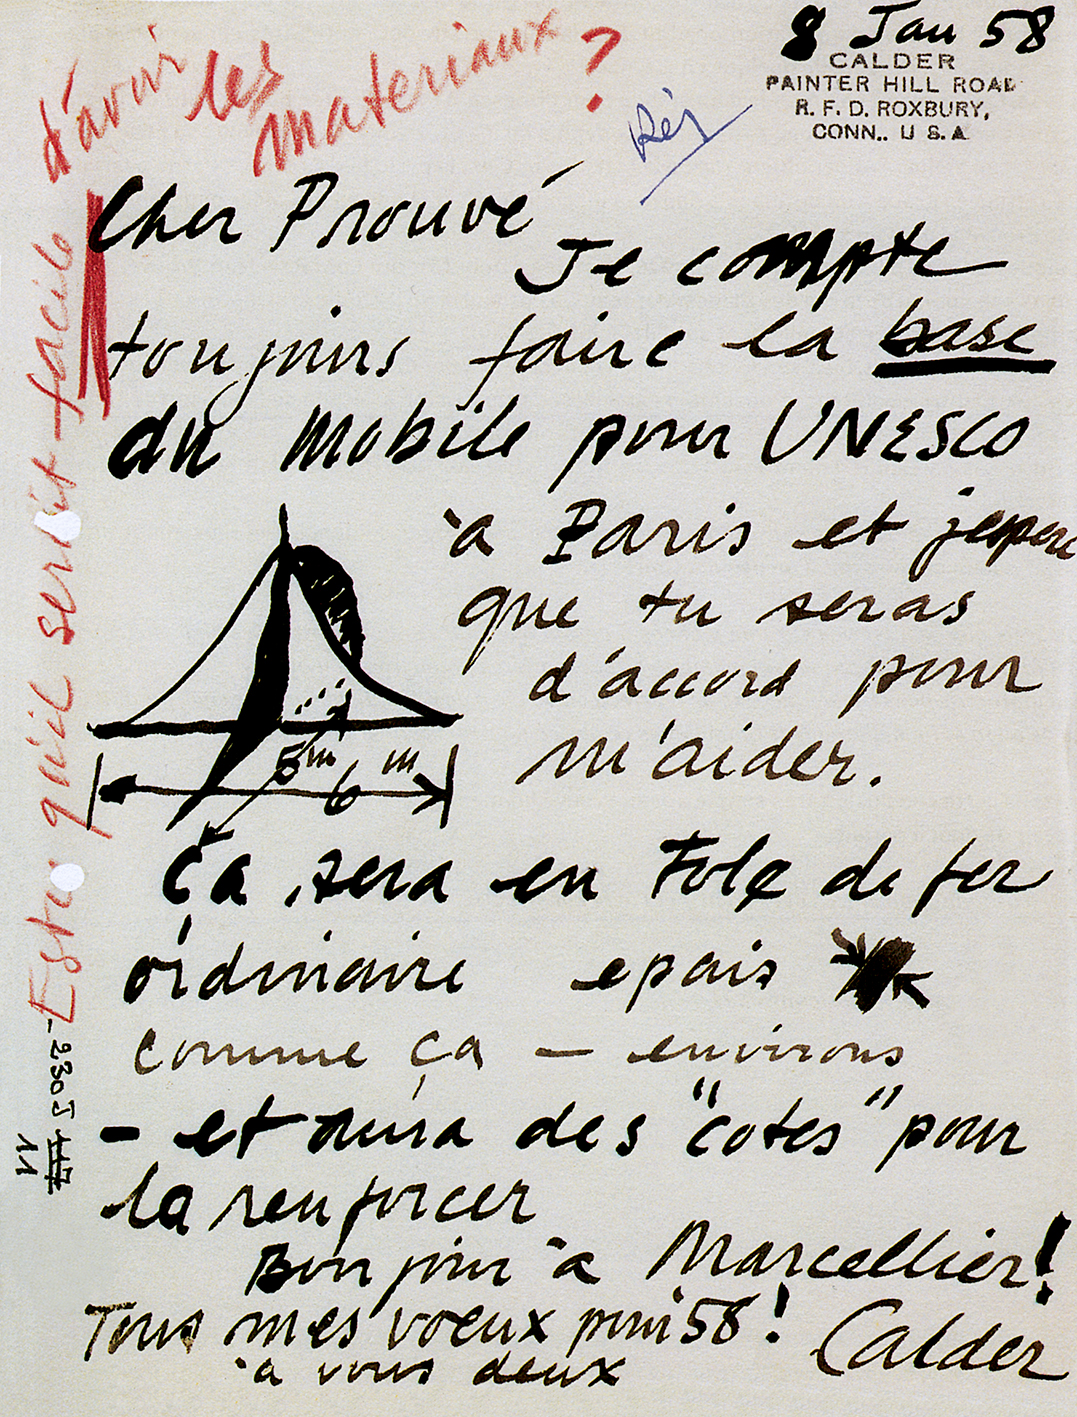 8 Jan 58
CALDER
PAINTER HILL ROAD
R. F. D. ROXBURY,
CONN.. U S. A
Cher Prouvé
Je compte
toujours faire la base
du Mobile pour UNESCO
à Paris et jespere
que tu seras
d'accord pour
m'aider.
5m
6m
Ça sera en Tole de fer
ordinaire epais
comme ça — environs
- et aura des "cotes" pour
la renforcer
Bonjour à Marcellier!
Tous mes voeux pour 58!
à vous deux
Calder
Est-ce qu'il serait facile
d'avoir les
materiaux ?
Rép
- 230J
11